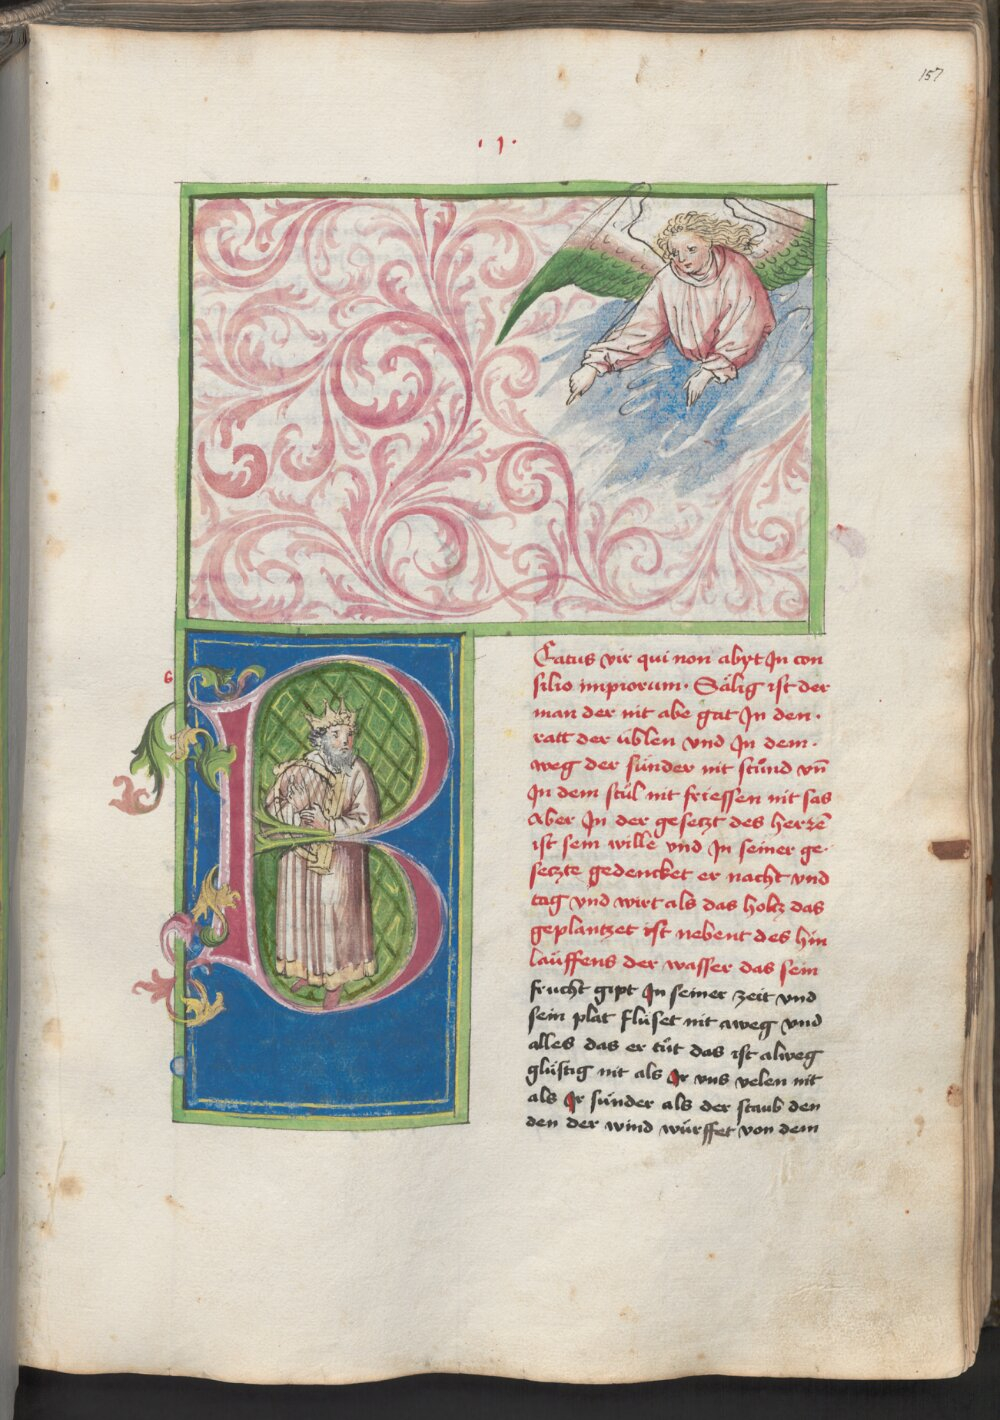 157
.1.
6
B
Eatus vir qui non abyt In con
silio impiorum. Sälig ist der
man der nit abe gat In den.
ratt der üblen vnd In dem.
weg der sünder nit stůnd vn̄
In dem stůl nit friessen nit sas
Aber In der gesetzt des herzē
ist sein wille vnd In seiner ge-
setzte gedencket er nacht vnd
tag vnd wirt als das holtz das
geplantzet ist nebent des hin
lauffens der wasser das sein
frucht gipt In seiner zeit vnd
sein plat flüset nit aweg vnd
alles das er tůt das ist alweg
glüstig nit als Ir vns velen nit
als Ir sünder als der staub den
den der wind würffet von dem